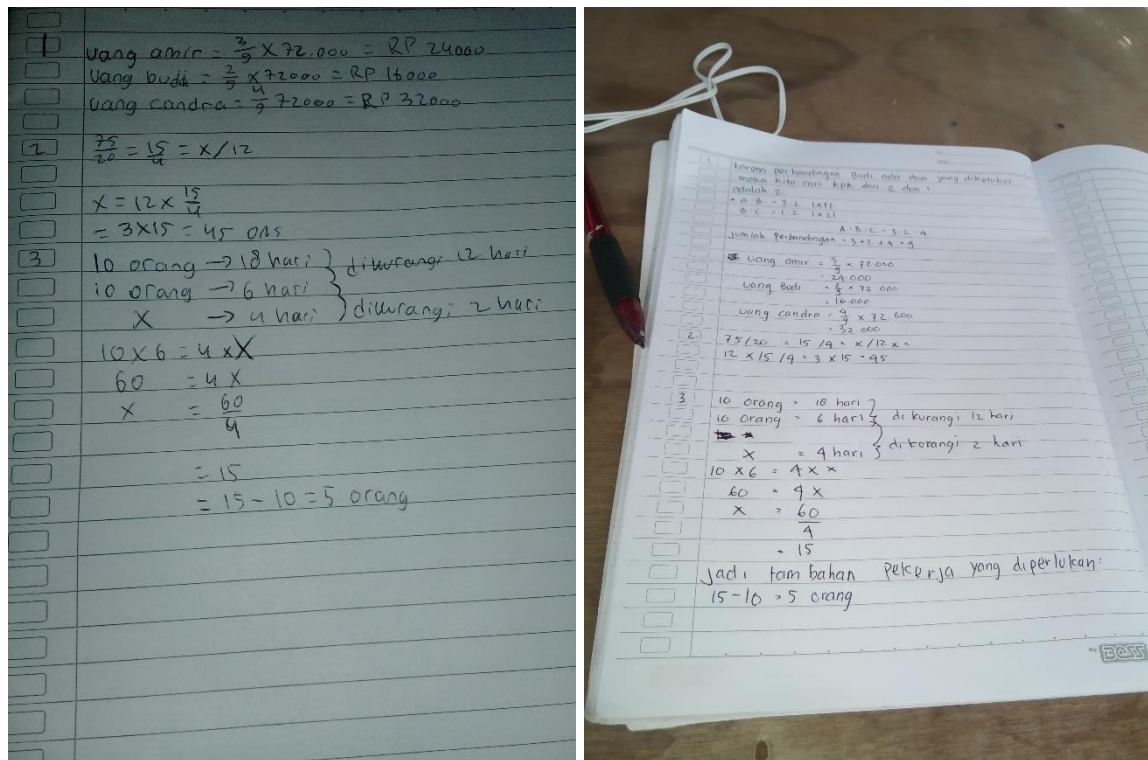 1
uang amir = 3/9 x 72.000 = RP 24000
uang budi = 2/9 x 72000 = RP 16000
uang candra = 4/9 72000 = RP 32000
2
75/20 = 15/4 = x/12
x = 12 x 15/4
= 3x15 = 45 ons
3
10 orang → 18 hari } dikurangi 12 hari
10 orang → 6 hari
x → 4 hari } dikurangi 2 hari
10 x 6 = 4 x X
60 = 4 x
x = 60/4
= 15
= 15 - 10 = 5 orang
1
karena perbandingan Budi ada dua yang diketahui
maka kita cari kpk dari 2 dan 1
adalah 2.
• A : B = 3 : 2 |x1|
B : C = 1 : 2 |x2|
A : B : C = 3 : 2 : 4
jumlah perbandingan = 3 + 2 + 4 = 9
uang amir = 3/9 x 72.000
= 24.000
uang Budi = 2/9 x 72.000
= 16.000
uang candra = 4/9 x 72.000
= 32.000
2
75/20 = 15/4 = x/12 x =
12 x 15/4 = 3 x 15 = 45
3
10 orang = 18 hari }
10 orang = 6 hari } di kurangi 12 hari
x = 4 hari } di korangi 2 hari
10 x 6 = 4 x x
60 = 4 x
x = 60/4
= 15
Jadi tambahan pekerja yang diperlukan:
15 - 10 = 5 orang
BOSS